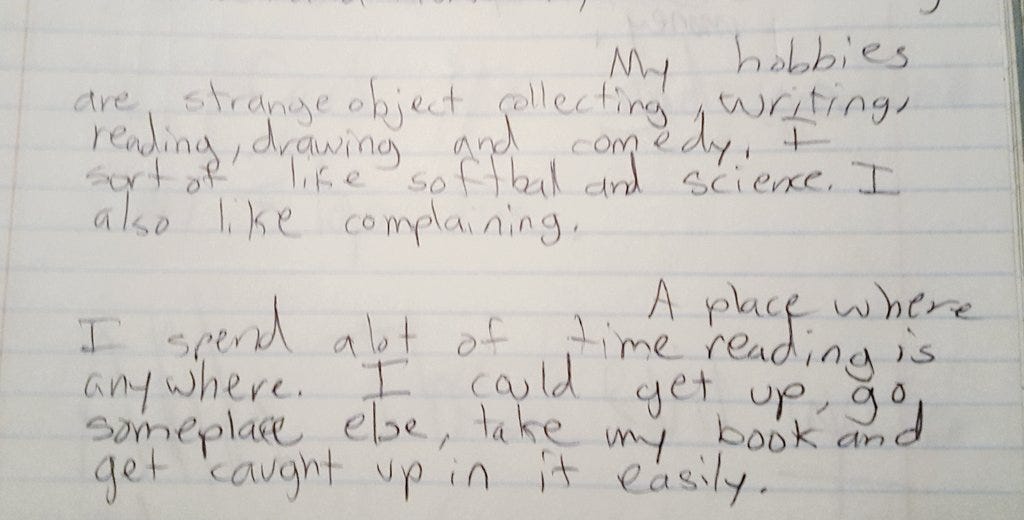 My hobbies
are strange object collecting, writing,
reading, drawing and comedy. I
sort of like softball and science. I
also like complaining.
A place where
I spend alot of time reading is
anywhere. I could get up, go
someplace else, take my book and
get caught up in it easily.